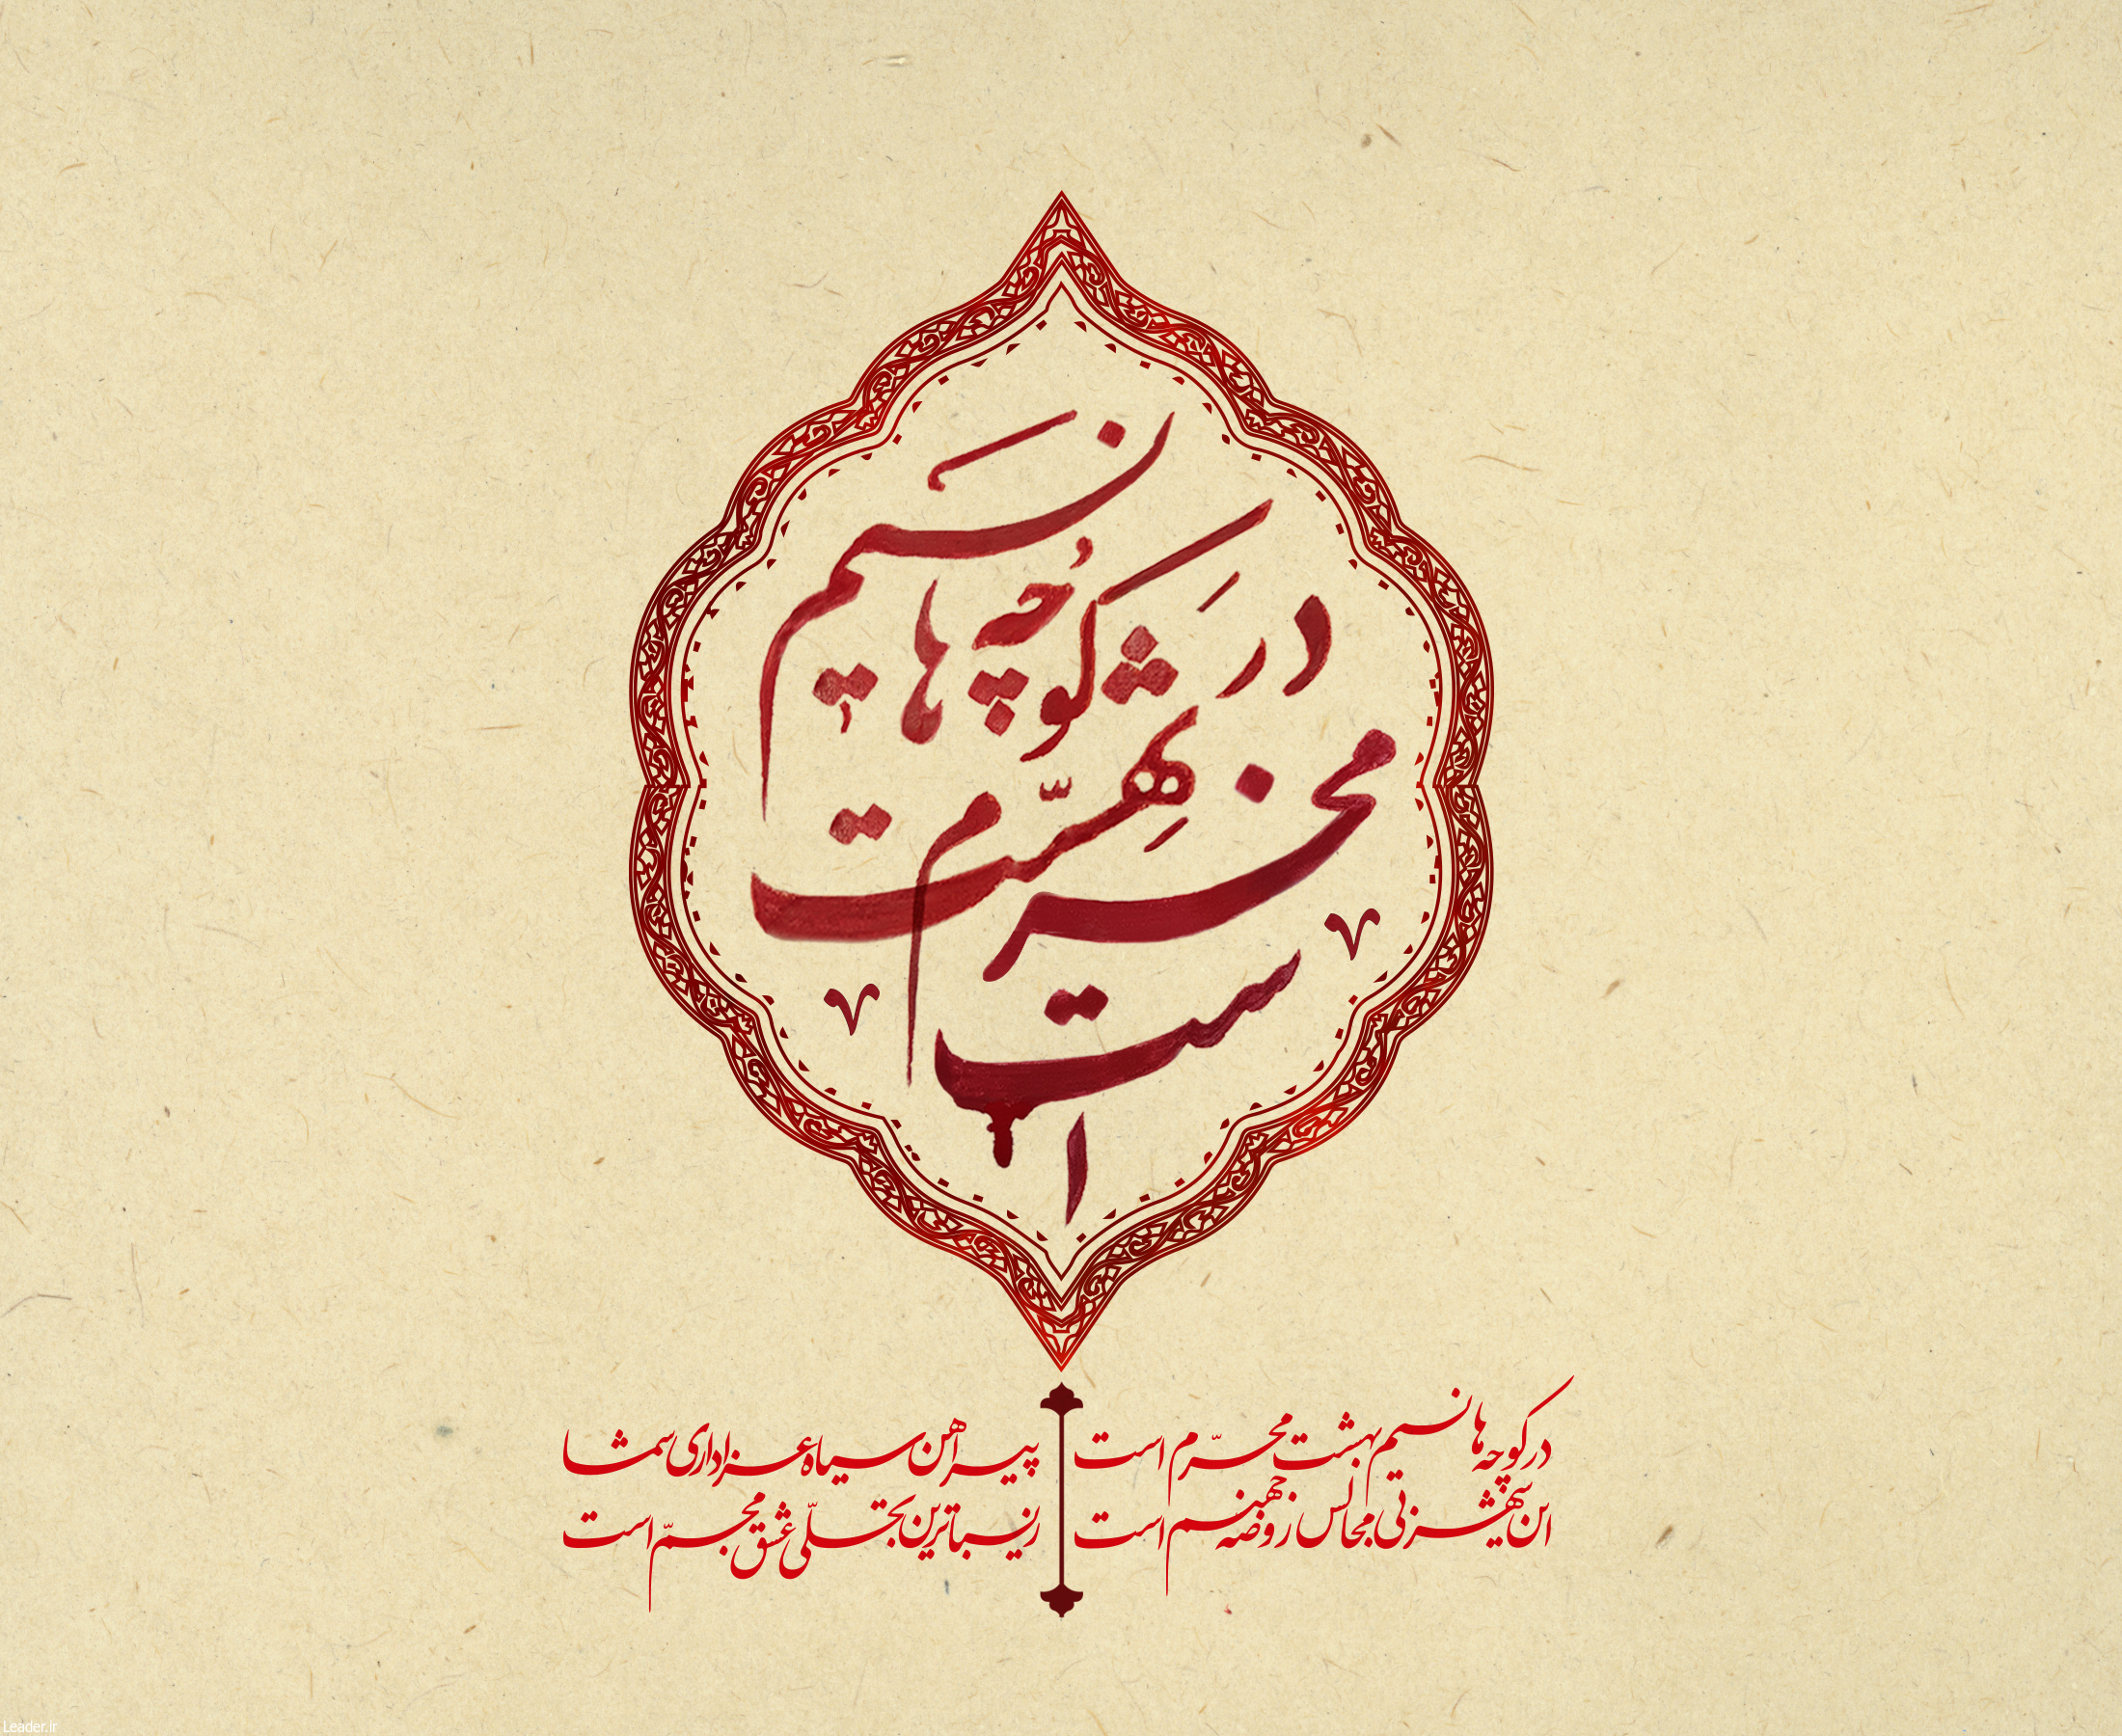 در کوچه ها نسیم
بهشت
محرّم
است
در کوچه ها نسیم بهشت محرّم است
این شهر بی مجالس روضه جهنم است
پیراهن سیاه عزاداری شما
زیباترین تجلّی عشق مجسّم است
Leader.ir